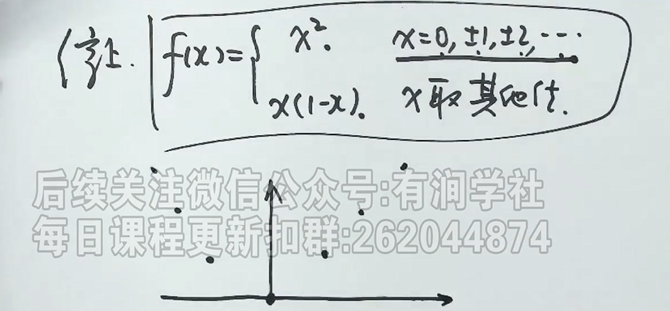 f(x)= { x². x=0, ±1, ±2, ...
x(1-x). x取其它时.
后续关注微信公众号:有润学社
每日课程更新扣群:262044874